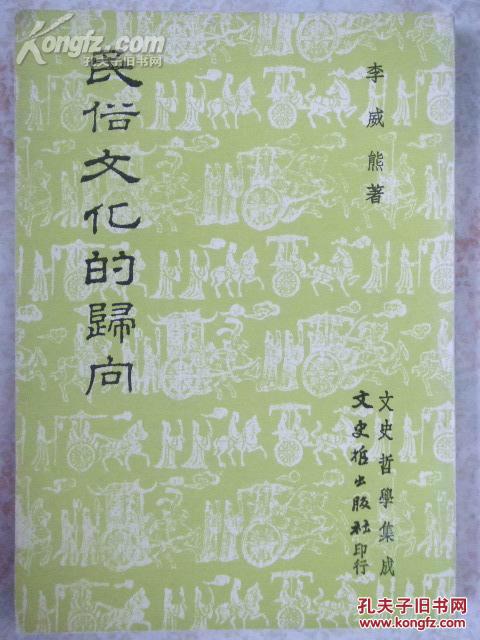 Kongfz.com
孔夫子旧书网
民俗文化的歸向
李威熊著
文史哲學集成
文史哲出版社印行
孔夫子旧书网
www.kongfz.com